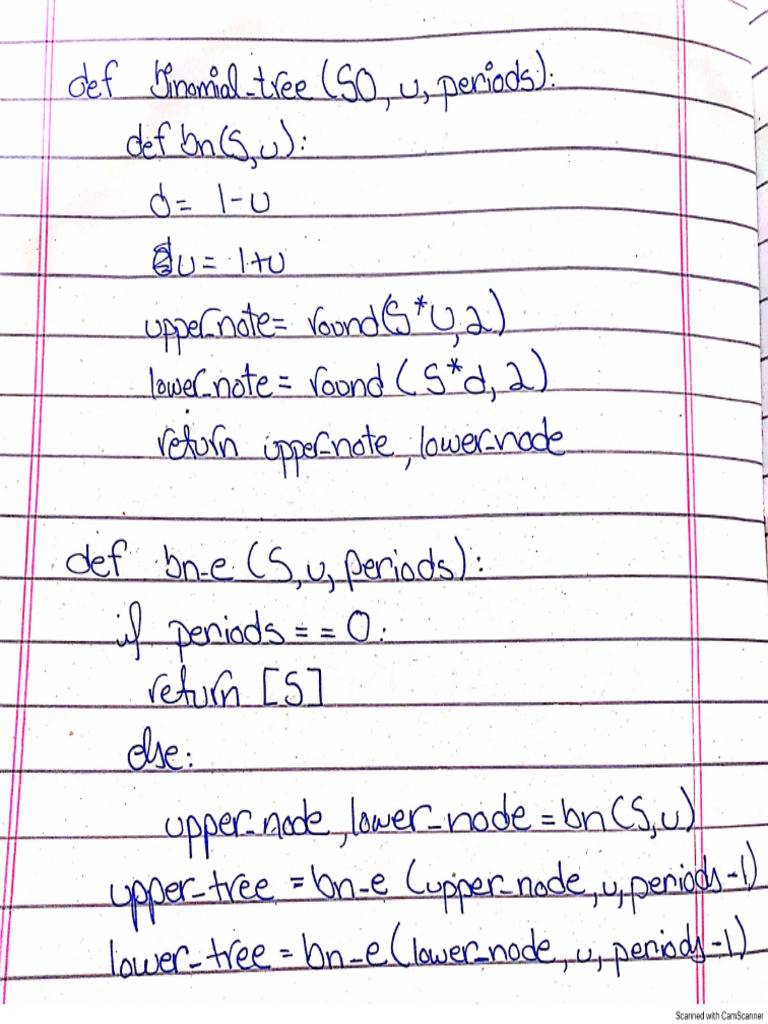 def binomial_tree(S0, u, periods):
def bn(S,u):
d= 1-u
u= 1+u
upper_note= round(S*U,2)
lower_note= round (S*d, 2)
return upper_note, lower_node
def bn_e (S,u, periods):
if periods == 0:
return [S]
else:
upper_node, lower_node = bn(S,u)
upper_tree = bn_e (upper_node, u, periods-1)
lower_tree = bn_e(lower_node, u, periods-1)
Scanned with CamScanner